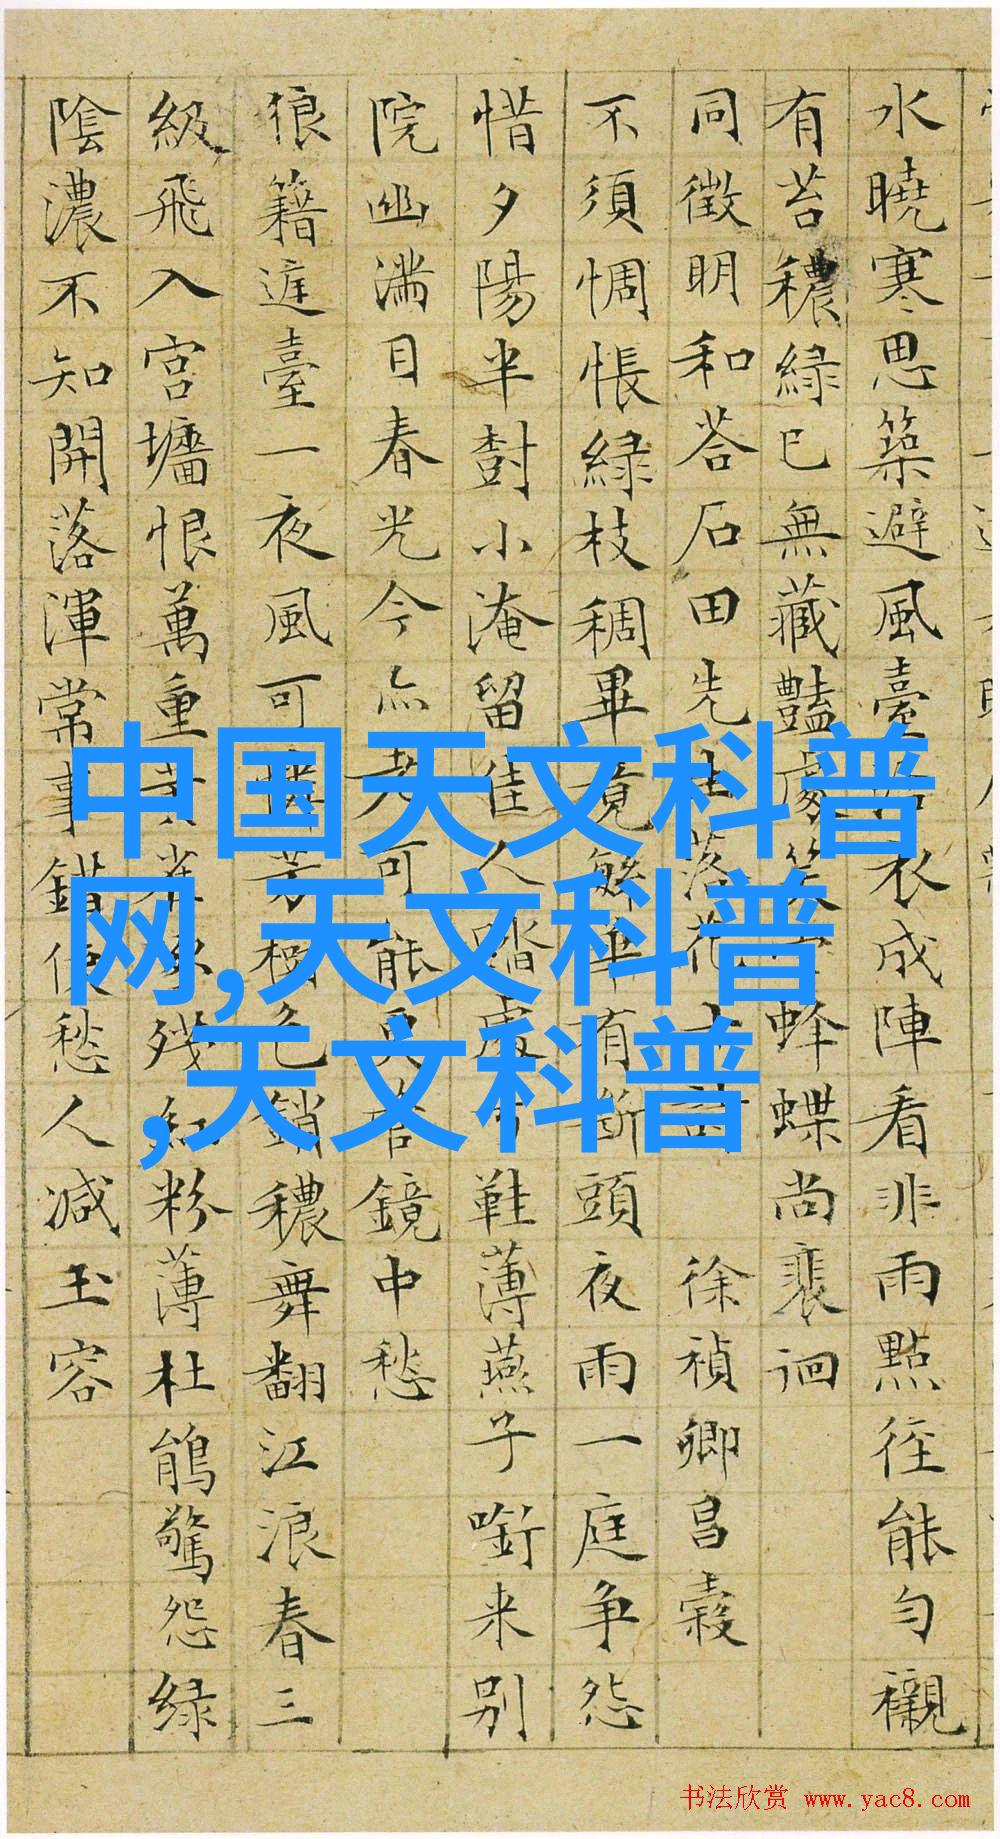 水曉寒思築避風臺衣成陣看非雨點徑能勻襯
有苔穠綠已無藏豔處蜂蝶尚裴迴
同徵明和荅石田先生落花十
徐禎卿昌榖
不須惆悵綠枝稠畢竟有斷頭夜雨一庭争怨
惜夕陽半對小淹留佳人踏處鞋薄燕子啣来别
院幽滿目春光今亦老可能更鏡中愁
狼籍遮臺一夜風可色銷穠舞翻江浪春三
級飛入宮墻恨萬重残紅粉薄杜鵑驚怨緑
陰濃不知開落渾常事錯使愁人减玉容
中国天文科普
网,天文科普
,天文科普
书法欣赏 www.yac8.com